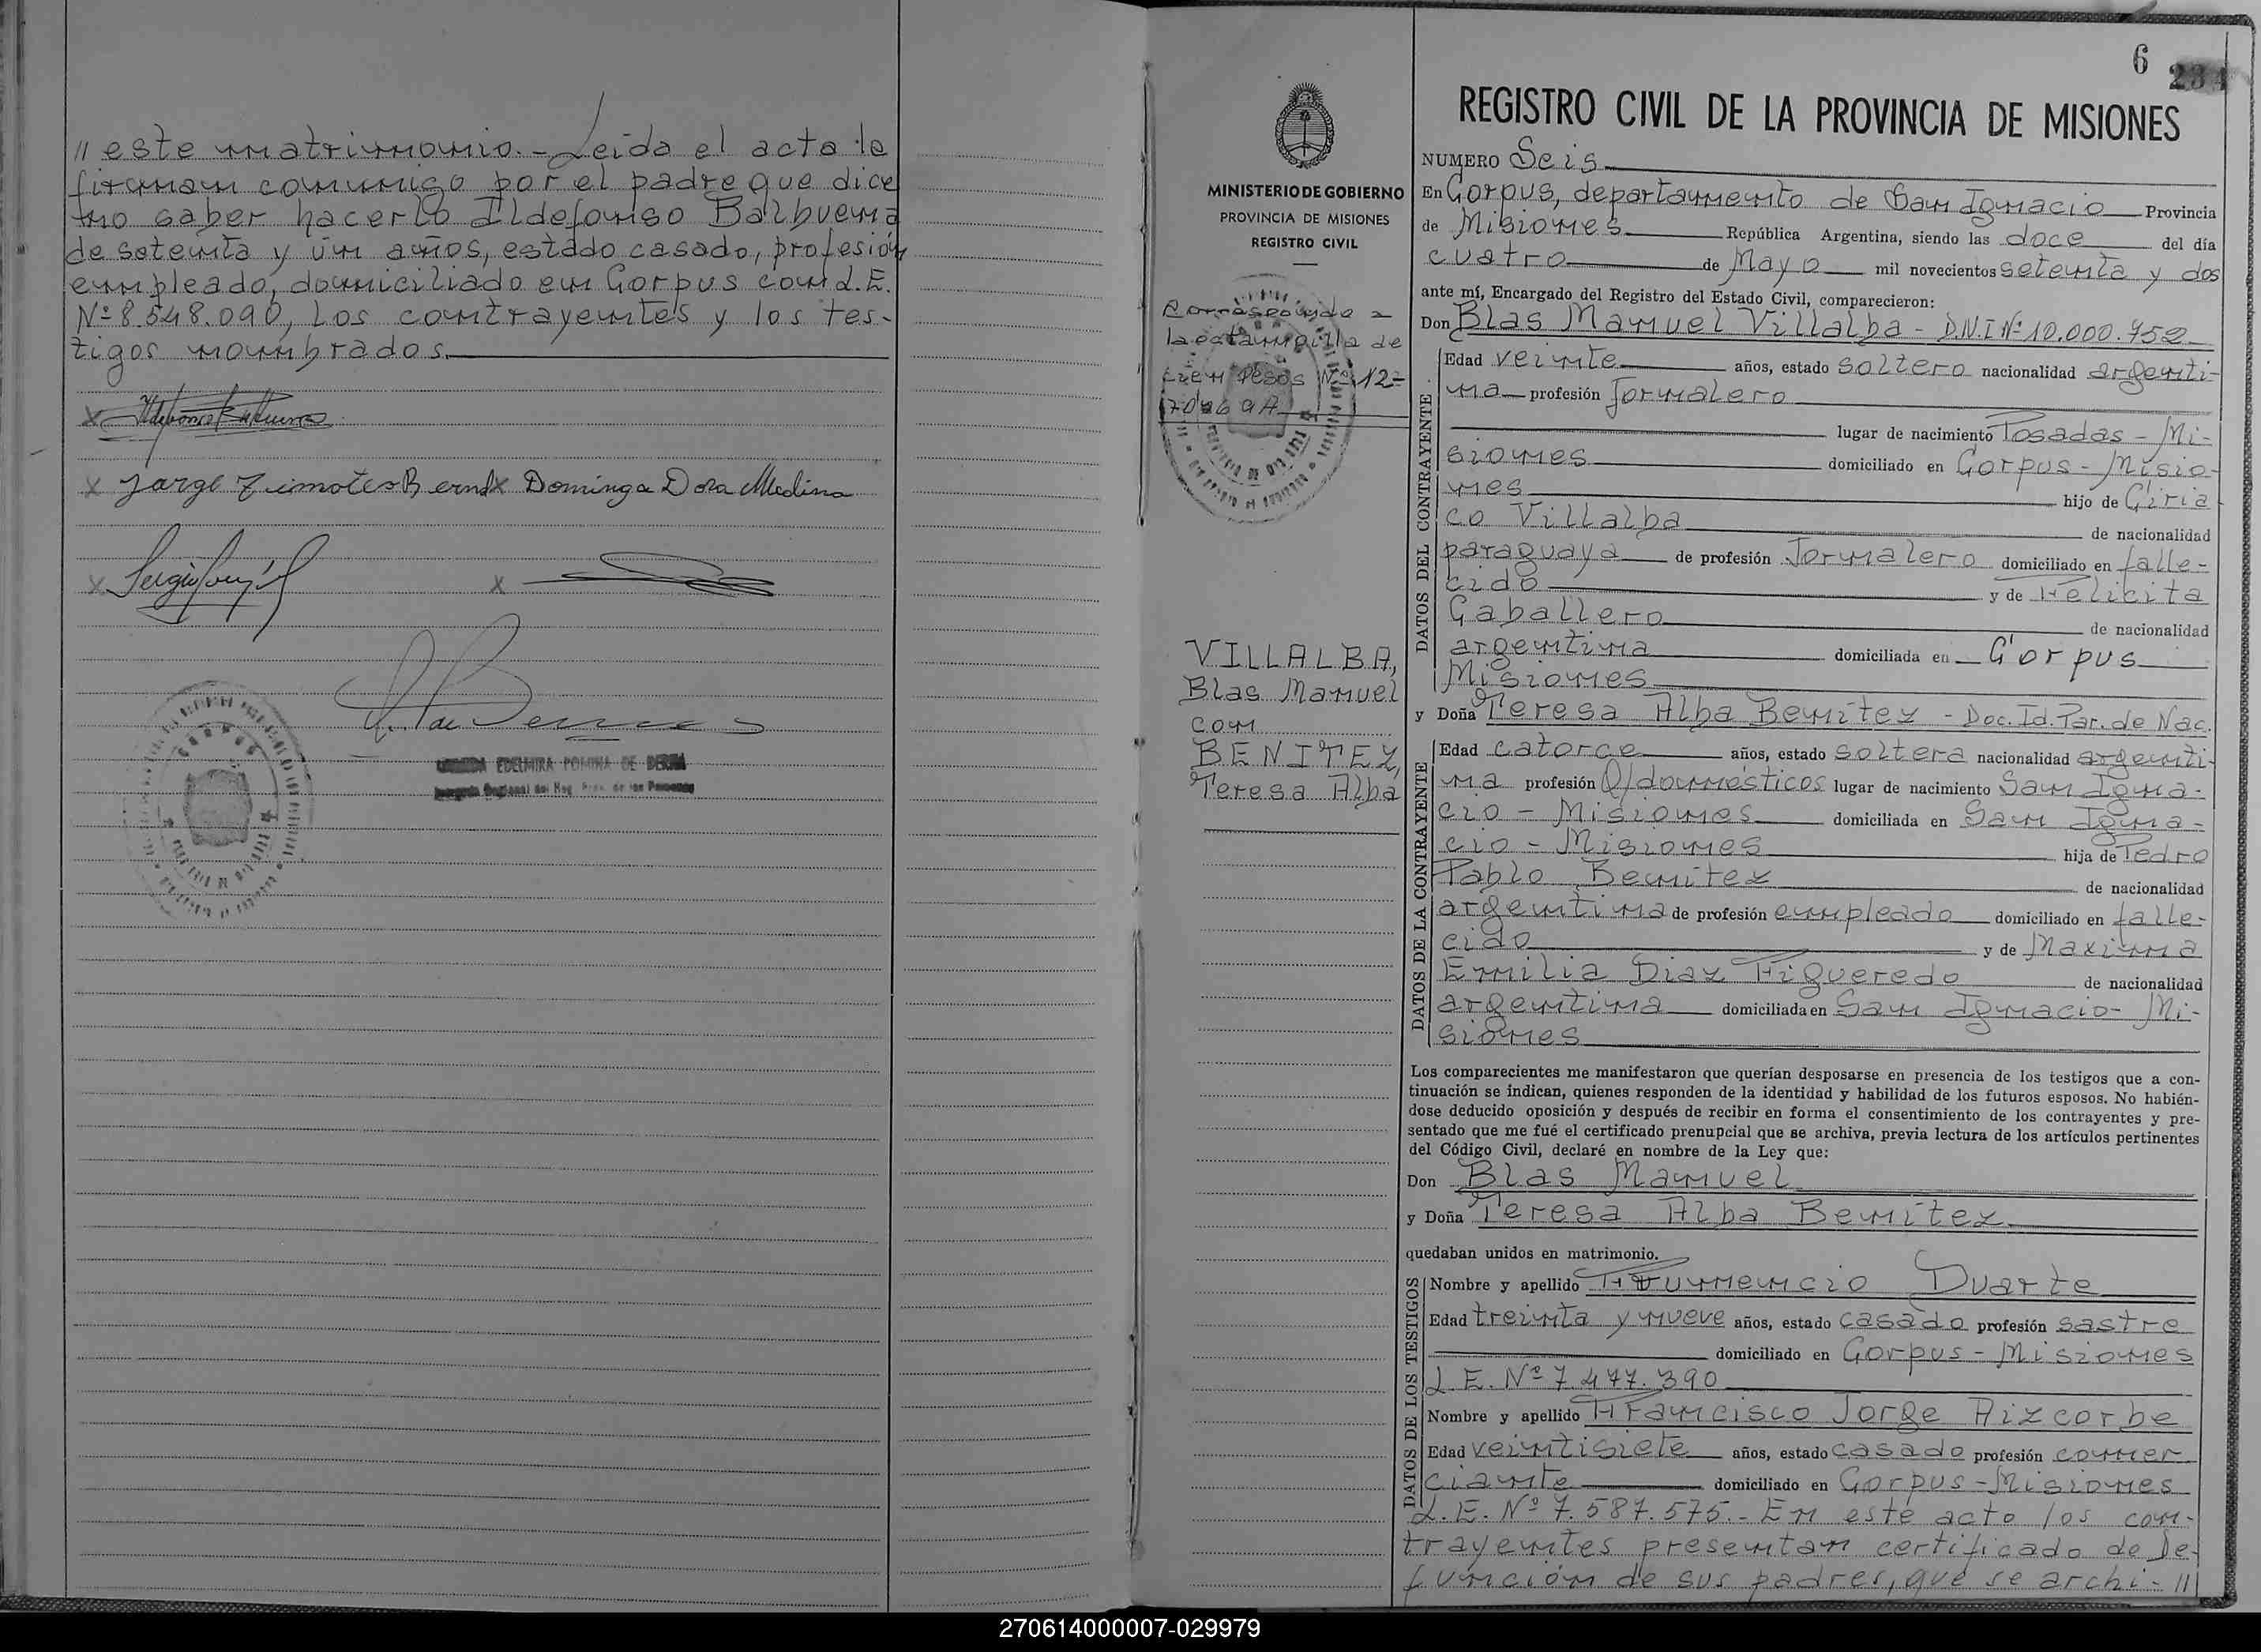 // este matrimonio.- Leida el acta la
firman conmigo por el padre que dice
no saber hacerlo Ildefonso Balbuena
de setenta y un años, estado casado, profesión
empleado, domiciliado en Corpus con L.E.
Nº 8.548.090, los contrayentes y los tes-
tigos nombrados.
x
x Jorge Timoteo Bernal x Dominga Dora Medina
x
x
EDELMIRA POMINA DE
6
REGISTRO CIVIL DE LA PROVINCIA DE MISIONES
MINISTERIO DE GOBIERNO
PROVINCIA DE MISIONES
REGISTRO CIVIL
Corresponde a
la estampilla de
cien pesos Nº 12-
VILLALBA,
Blas Manuel
con
BENITEZ,
Teresa Alba
NUMERO Seis
En Corpus, departamento de San Ignacio Provincia
de Misiones República Argentina, siendo las doce del día
cuatro de Mayo mil novecientos setenta y dos
ante mí, Encargado del Registro del Estado Civil, comparecieron:
Don Blas Manuel Villalba - D.N.I Nº 10.000.752
DATOS DEL CONTRAYENTE
Edad veinte años, estado soltero nacionalidad argenti-
na profesión Jornalero
lugar de nacimiento Posadas - Mi-
siones domiciliado en Corpus - Misio-
nes hijo de Ciria
co Villalba de nacionalidad
paraguaya de profesión Jornalero domiciliado en falle-
cido y de Felicita
Caballero de nacionalidad
argentina domiciliada en Corpus
Misiones
y Doña Teresa Alba Benítez - Doc. Id. Par. de Nac.
DATOS DE LA CONTRAYENTE
Edad catorce años, estado soltera nacionalidad argenti-
na profesión Q/domésticos lugar de nacimiento San Igna-
cio - Misiones domiciliada en San Igna-
cio - Misiones hija de Pedro
Pablo Benitez de nacionalidad
argentina de profesión empleado domiciliado en falle-
cido y de Maxima
Emilia Diaz Figueredo de nacionalidad
argentina domiciliada en San Ignacio - Mi-
siones
Los comparecientes me manifestaron que querían desposarse en presencia de los testigos que a con-
tinuación se indican, quienes responden de la identidad y habilidad de los futuros esposos. No habién-
dose deducido oposición y después de recibir en forma el consentimiento de los contrayentes y pre-
sentado que me fué el certificado prenupcial que se archiva, previa lectura de los artículos pertinentes
del Código Civil, declaré en nombre de la Ley que:
Don Blas Manuel
y Doña Teresa Alba Benítez
quedaban unidos en matrimonio.
DATOS DE LOS TESTIGOS
Nombre y apellido Duarte
Edad treinta y nueve años, estado casado profesión sastre
domiciliado en Corpus - Misiones
L.E. Nº 7.477.390
Nombre y apellido Francisco Jorge Aizcorbe
Edad veintisiete años, estado casado profesión comer
ciante domiciliado en Corpus - Misiones
L.E. Nº 7.587.575.- En este acto los con-
trayentes presentan certificado de De-
función de sus padres, que se archi- //
270614000007-029979